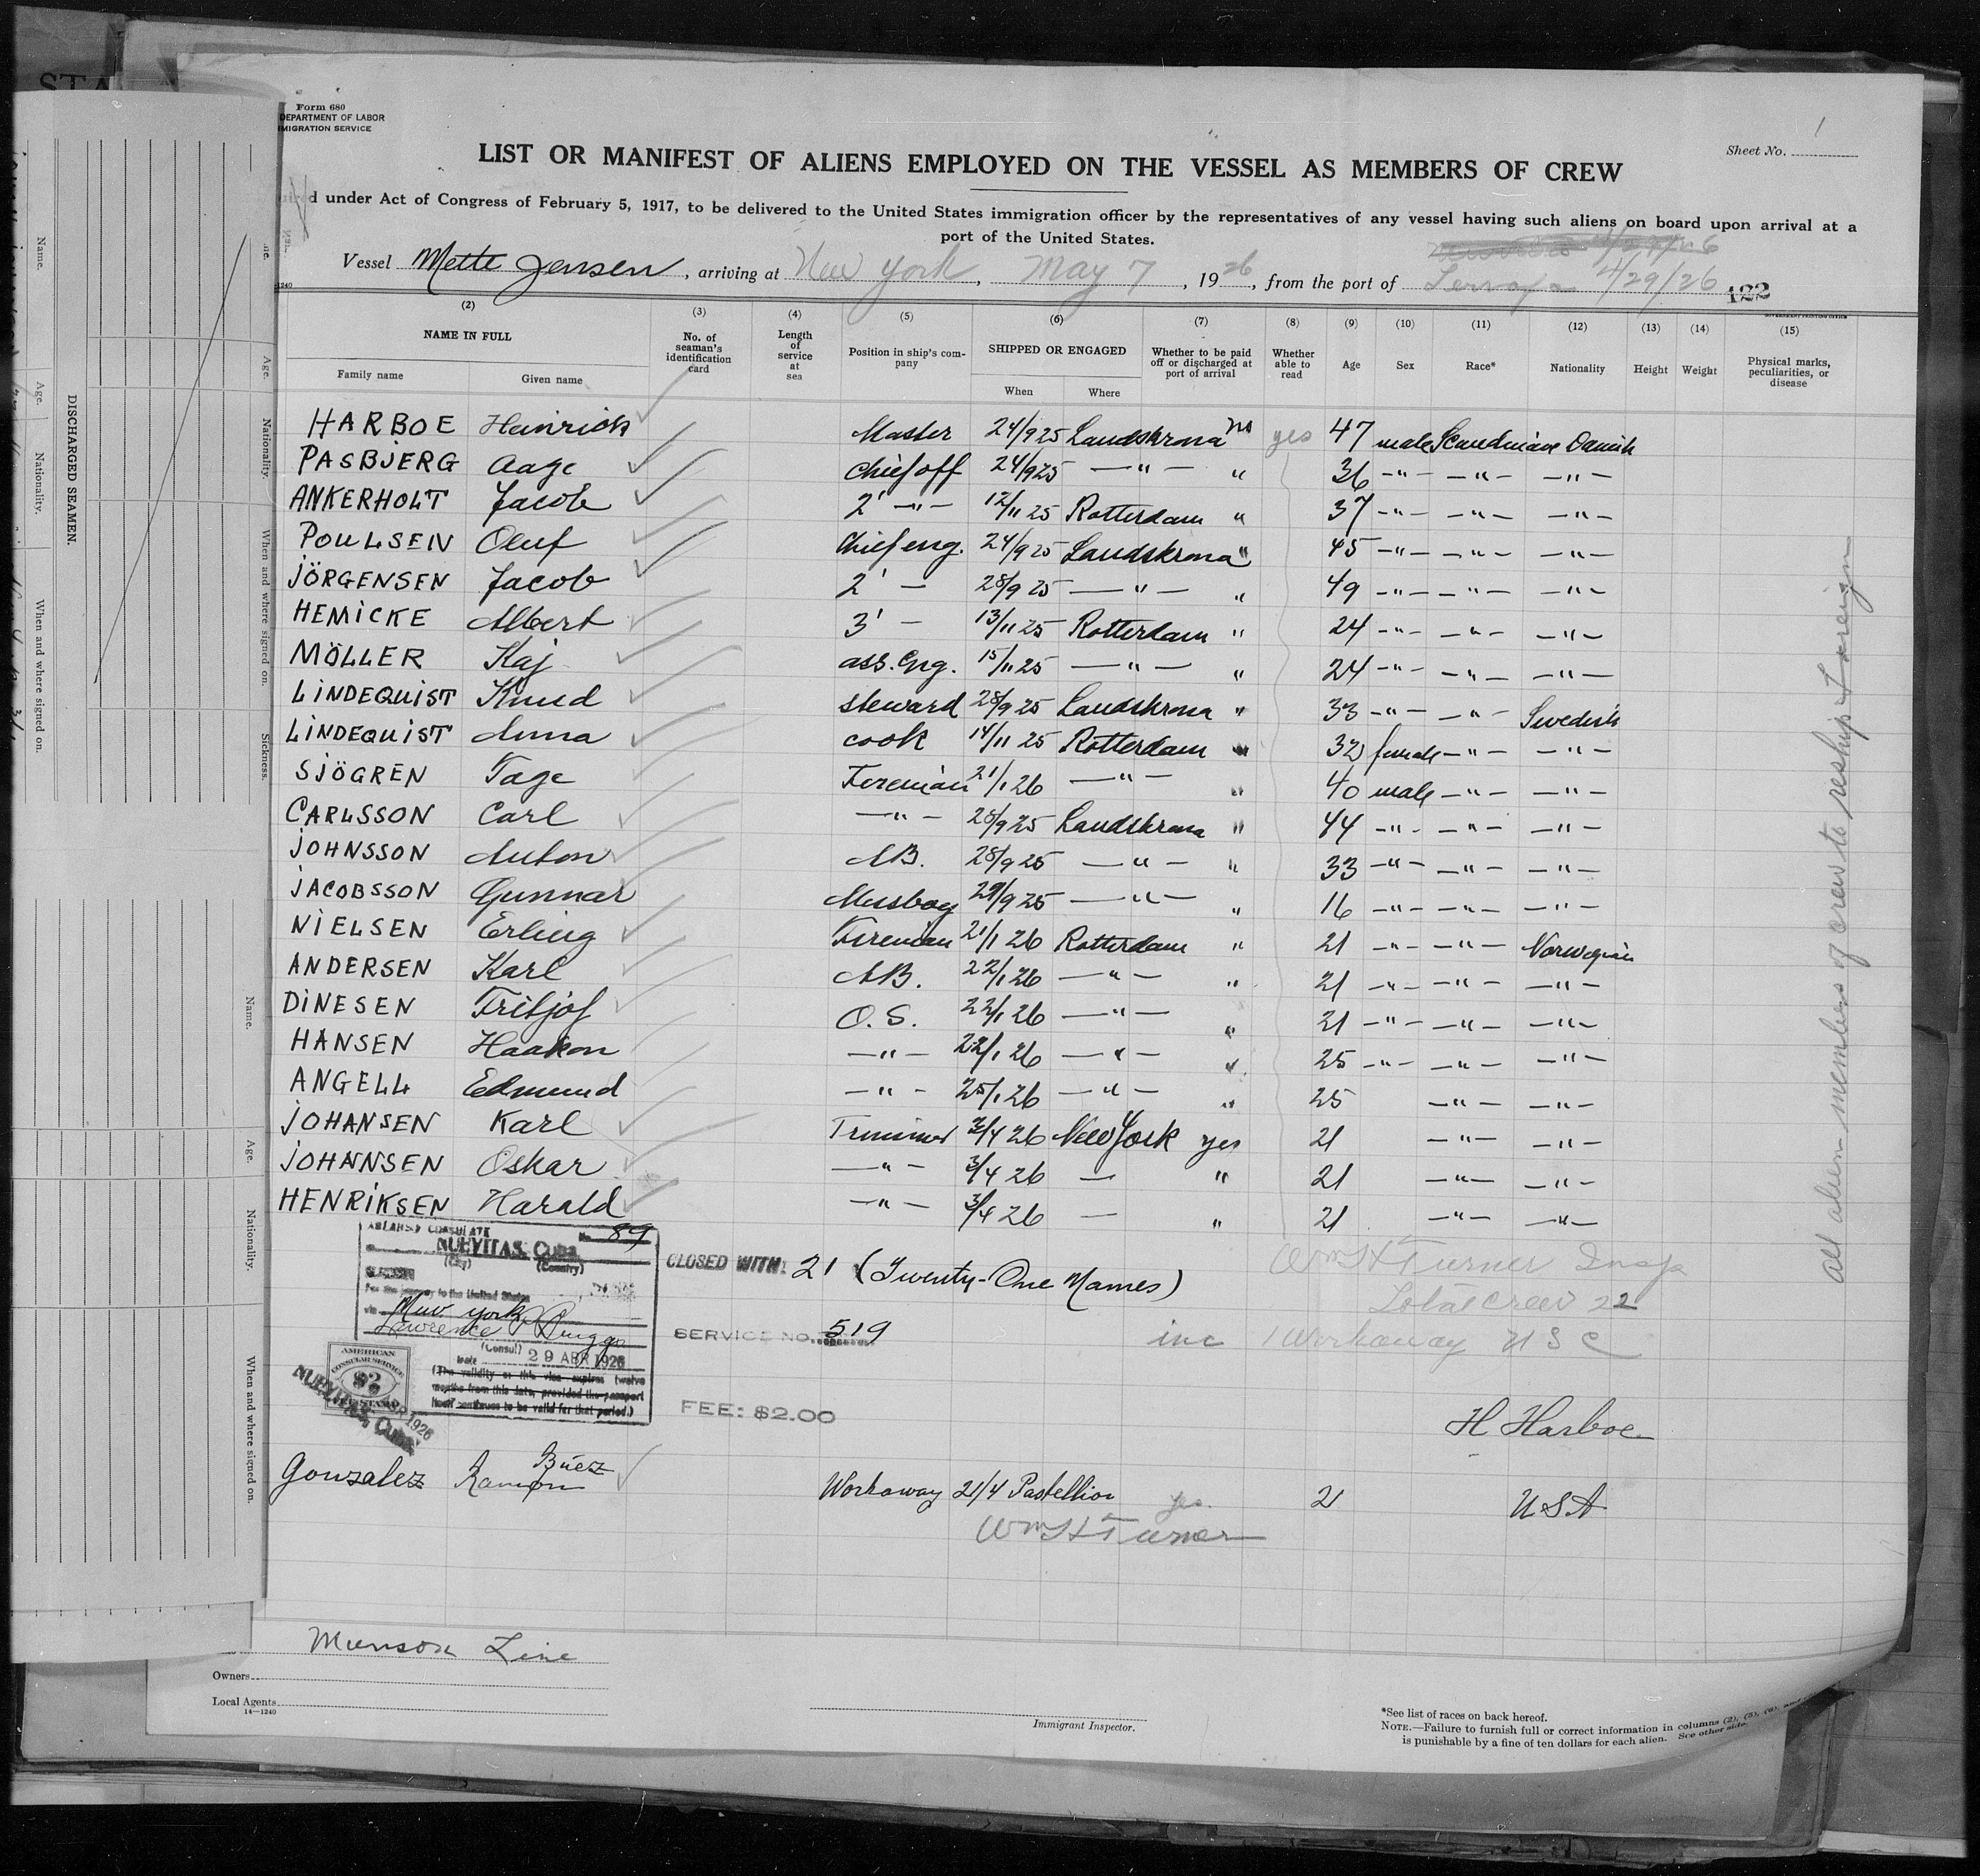 STA
Form 680
DEPARTMENT OF LABOR
IMIGRATION SERVICE
Sheet No. 1
LIST OR MANIFEST OF ALIENS EMPLOYED ON THE VESSEL AS MEMBERS OF CREW
under Act of Congress of February 5, 1917, to be delivered to the United States immigration officer by the representatives of any vessel having such aliens on board upon arrival at a
port of the United States.
Vessel Mette Jensen, arriving at New York, May 7, 1926, from the port of 4/29/26
122
(2) (3) (4) (5) (6) (7) (8) (9) (10) (11) (12) (13) (14) (15)
NAME IN FULL
Family name Given name
No. of seaman's identification card
Length of service at sea
Position in ship's company
SHIPPED OR ENGAGED
When Where
Whether to be paid off or discharged at port of arrival
Whether able to read
Age Sex Race* Nationality Height Weight
Physical marks, peculiarities, or disease
HARBOE Heinrich Master 24/9 25 Landskrona no yes 47 male Scandinave Danish
PASBJERG Aage Chief off 24/9 25 —"— " 36 —"— —"— —"—
ANKERHOLT Jacob 2' —"— 12/11 25 Rotterdam " 37 —"— —"— —"—
POULSEN Oluf Chief eng. 24/9 25 Landskrona " 45 —"— —"— —"—
JÖRGENSEN Jacob 2' — 28/9 25 —"— " 49 —"— —"— —"—
HEMICKE Albert 3' — 13/11 25 Rotterdam " 24 —"— —"— —"—
MÖLLER Kaj ass. Eng. 15/11 25 —"— " 24 —"— —"— —"—
LINDEQUIST Knud steward 28/9 25 Landskrona " 33 —"— —"— Swedish
LINDEQUIST Anna cook 14/11 25 Rotterdam " 32 female —"— —"—
SJÖGREN Tage Fireman 21/1 26 —"— " 40 male —"— —"—
CARLSSON Carl —"— 28/9 25 Landskrona " 44 —"— —"— —"—
JOHNSSON Anton AB. 28/9 25 —"— " 33 —"— —"— —"—
JACOBSSON Gunnar Messboy 29/9 25 —"— " 16 —"— —"— —"—
NIELSEN Erling Fireman 21/1 26 Rotterdam " 21 —"— —"— Norwegian
ANDERSEN Karl AB. 22/1 26 —"— " 21 —"— —"— —"—
DINESEN Fritjof O.S. 22/1 26 —"— " 21 —"— —"— —"—
HANSEN Haakon —"— 22/1 26 —"— " 25 —"— —"— —"—
ANGELL Edmund —"— 25/1 26 —"— " 25 —"— —"—
JOHANSEN Karl Trimmer 3/4 26 New York yes 21 —"— —"—
JOHANNSEN Oskar —"— 3/4 26 — " 21 —"— —"—
HENRIKSEN Harald —"— 3/4 26 — " 21 —"— —"—
All alien members of crew to reship foreign
CONSULATE
No. 89
NUEVITAS, Cuba
(City) (Country)
For the journey to the United States
via New York
Lawrence P Briggs
(Consul)
Date 29 ABR 1926
(The validity of this visa expires twelve
months from this date, provided the passport
itself continues to be valid for that period.)
AMERICAN
CONSULAR SERVICE
$2
FEE STAMP
NUEVITAS, Cuba
CLOSED WITH: 21 (Twenty-One Names)
SERVICE NO. 519
FEE: $2.00
Wm H Turner Insp
Total crew 22
inc Workaway USC
H Harboe
Gonzalez Ramon Búez Workaway 21/4 Pastellior yes 21 USA
Wm H Turner
Munson Line
Owners
Local Agents
14—1240
Immigrant Inspector.
*See list of races on back hereof.
NOTE.—Failure to furnish full or correct information in columns (2), (5), (6), and
is punishable by a fine of ten dollars for each alien. See other side.
DISCHARGED SEAMEN.
Name. Age. Nationality. When and where signed on.
Age. Nationality. When and where signed on. Sickness.
Name. Age. Nationality. When and where signed on.